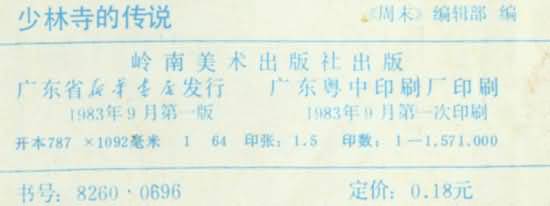 少林寺的传说 《周末》编辑部 编
岭南美术出版社出版
广东省新华书店发行 广东粤中印刷厂印刷
1983年9月第一版 1983年9月第一次印刷
开本787 ×1092毫米 1 64 印张：1.5 印数：1—1,571.000
书号：8260·0696 定价：0.18元